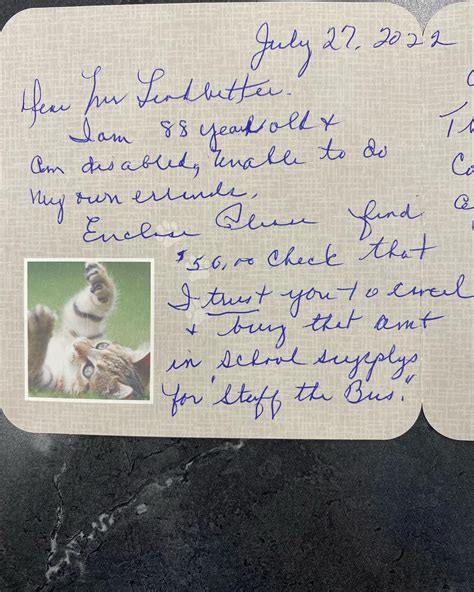 July 27, 2022
Dear Mr Leadbetter.
I am 88 years old &
am disabled, unable to do
my own errinds.
Enclose Please find
$50.00 check that
I trust you to
& buy that amt
in school supplys
for "Stuff the Bus."